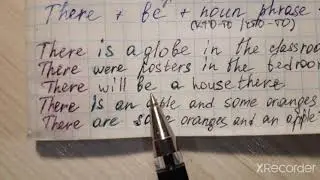 There + be + noun phrase
There is a globe in the classroom
There were posters in the bedroom
There will be a house there
There is an apple and some oranges
There are some oranges and an apple
XRecorder